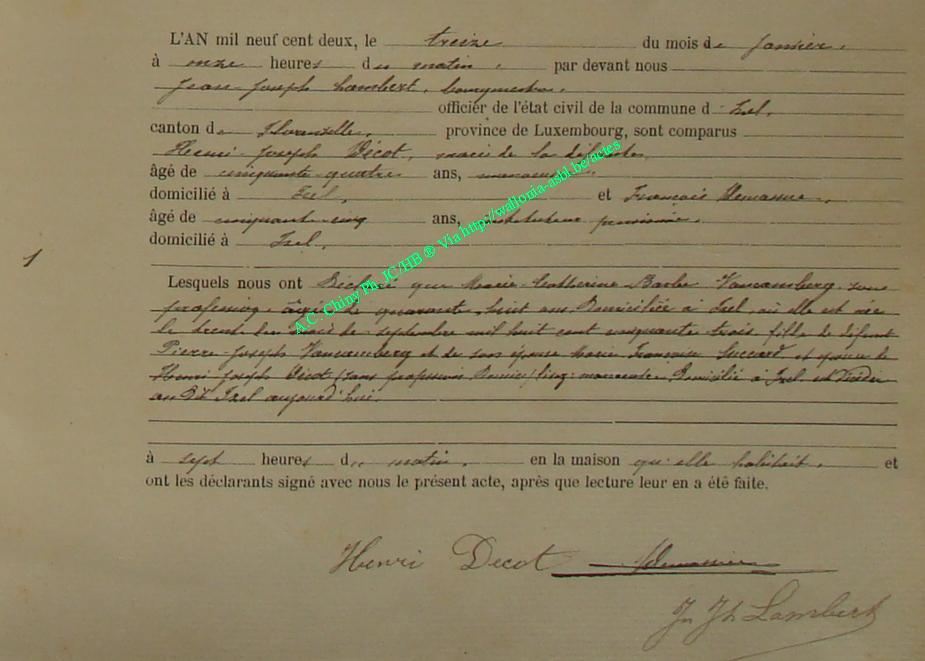 L'AN mil neuf cent deux, le treize du mois de Janvier,
à onze heures du matin, par devant nous
Jean-Joseph Lambert, bourgmestre,
officier de l'état civil de la commune d'Izel,
canton de Florenville, province de Luxembourg, sont comparus
Henri-Joseph Dècot, mari de la défunte,
âgé de cinquante quatre ans, manoeuvre,
domicilié à Izel, et François
âgé de cinquante-cinq ans, instituteur pensionné,
domicilié à Izel,
1
Lesquels nous ont Déclaré que Marie-Catherine Barbe Vancamberg, sans
profession, âgée de quarante huit ans, Domiciliée à Izel, où elle est née
le trente du mois de septembre mil huit cent cinquante trois, fille de défunt
Pierre-Joseph Vancamberg et de son épouse Marie Françoise et épouse de
Henri Joseph Dècot (sans profession manoeuvre, Domicilié à Izel, est décédée
au dit Izel aujourd'hui.
à sept heures du matin, en la maison qu'elle habitait, et
ont les déclarants signé avec nous le présent acte, après que lecture leur en a été faite.
Henri Decot
Jn Jh Lambert
A.C. Chiny Ph. JC/HB ® Via http://wallonia-asbl.be/actes